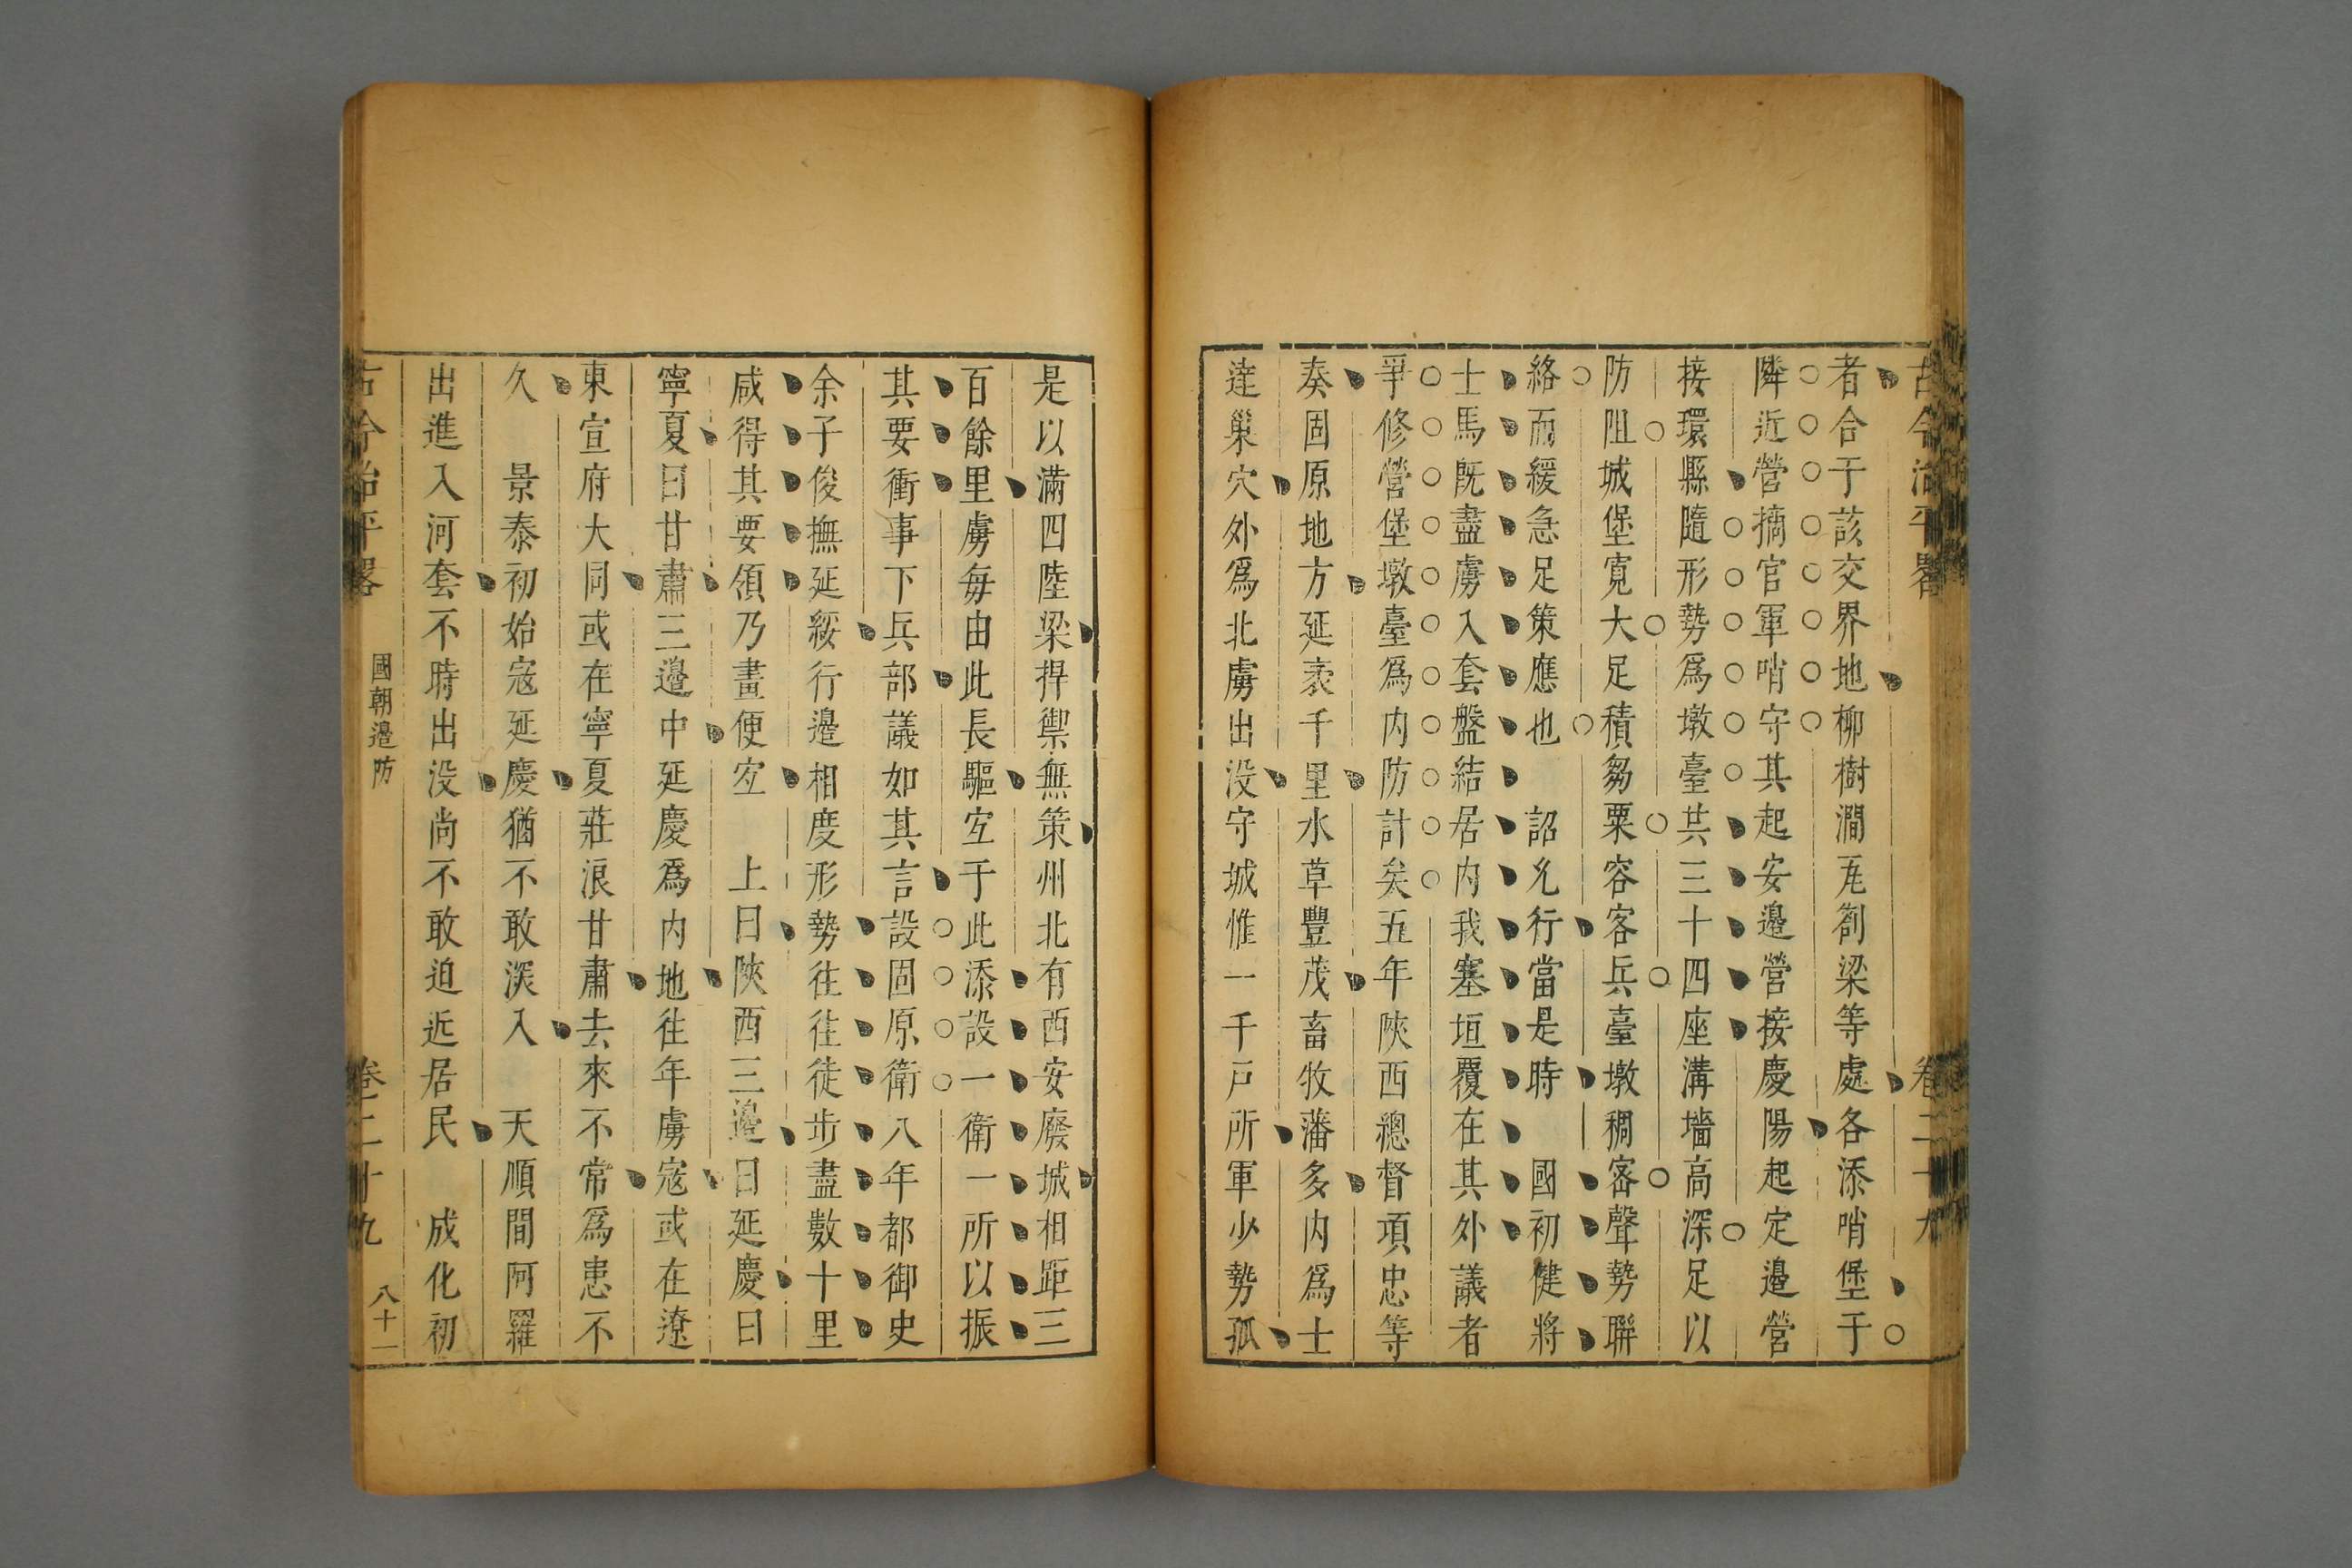 古今治平畧 卷二十九
者合于該交界地柳樹澗瓦剳梁等處各添哨堡于
隣近營摘官軍哨守其起安邊營接慶陽起定邊營
接環縣隨形勢爲墩臺共三十四座溝墻高深足以
防阻城堡寛大足積芻粟容客兵臺墩稠宻聲勢聯
絡而緩急足策應也 詔允行當是時 國初健將
士馬旣盡虜入套盤結居内我塞垣覆在其外議者
爭修營堡墩臺爲内防計矣五年陜西總督項忠等
奏固原地方延袤千里水草豐茂畜牧藩多内爲士
達巢穴外爲北虜出没守城惟一千戸所軍少勢孤
是以滿四陸梁捍禦無策州北有西安廢城相距三
百餘里虜每由此長驅宐于此添設一衛一所以振
其要衝事下兵部議如其言設固原衛八年都御史
余子俊撫延綏行邊相度形勢往往徒步盡數十里
咸得其要領乃畫便宐 上曰陜西三邊曰延慶曰
寧夏曰甘肅三邊中延慶爲内地往年虜寇或在遼
東宣府大同或在寧夏莊浪甘肅去來不常爲患不
久 景泰初始寇延慶猶不敢深入 天順間阿羅
出進入河套不時出没尚不敢迫近居民 成化初
古今治平畧 國朝邊防 卷二十九 八十一